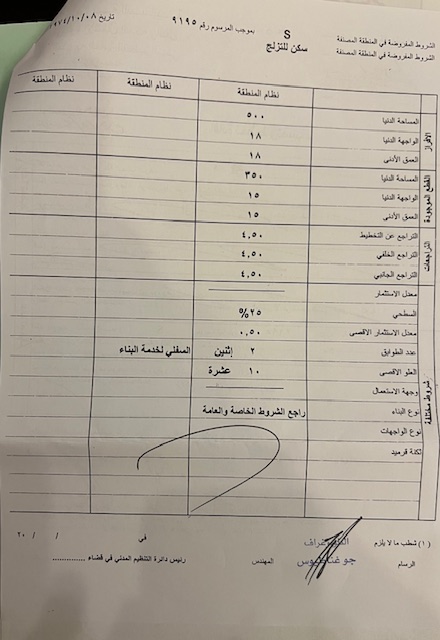 الشروط المفروضة في المنطقة المصنفة S بموجب المرسوم رقم ٩١٩٥ تاريخ ١٩٧٤/١٠/٠٨
الشروط المفروضة في المنطقة المصنفة سكن للتزلج
نظام المنطقة نظام المنطقة نظام المنطقة
الافراز
المساحة الدنيا ٥٠٠
الواجهة الدنيا ١٨
العمق الأدنى ١٨
القطع الموجودة
المساحة الدنيا ٣٥٠
الواجهة الدنيا ١٥
العمق الأدنى ١٥
التراجعات
التراجع عن التخطيط ٤,٥٠
التراجع الخلفي ٤,٥٠
التراجع الجانبي ٤,٥٠
شروط مختلفة
معدل الاستثمار
السطحي ٢٥%
معدل الاستثمار الاقصى ٠,٥٠
عدد الطوابق ٢ إثنين السفلي لخدمة البناء
العلو الاقصى ١٠ عشرة
وجهة الاستعمال
نوع البناء راجع الشروط الخاصة والعامة
نوع الواجهات
لكنة قرميد
(١) شطب ما لا يلزم في / / ٢٠
الرسام المهندس رئيس دائرة التنظيم المدني في قضاء ..............